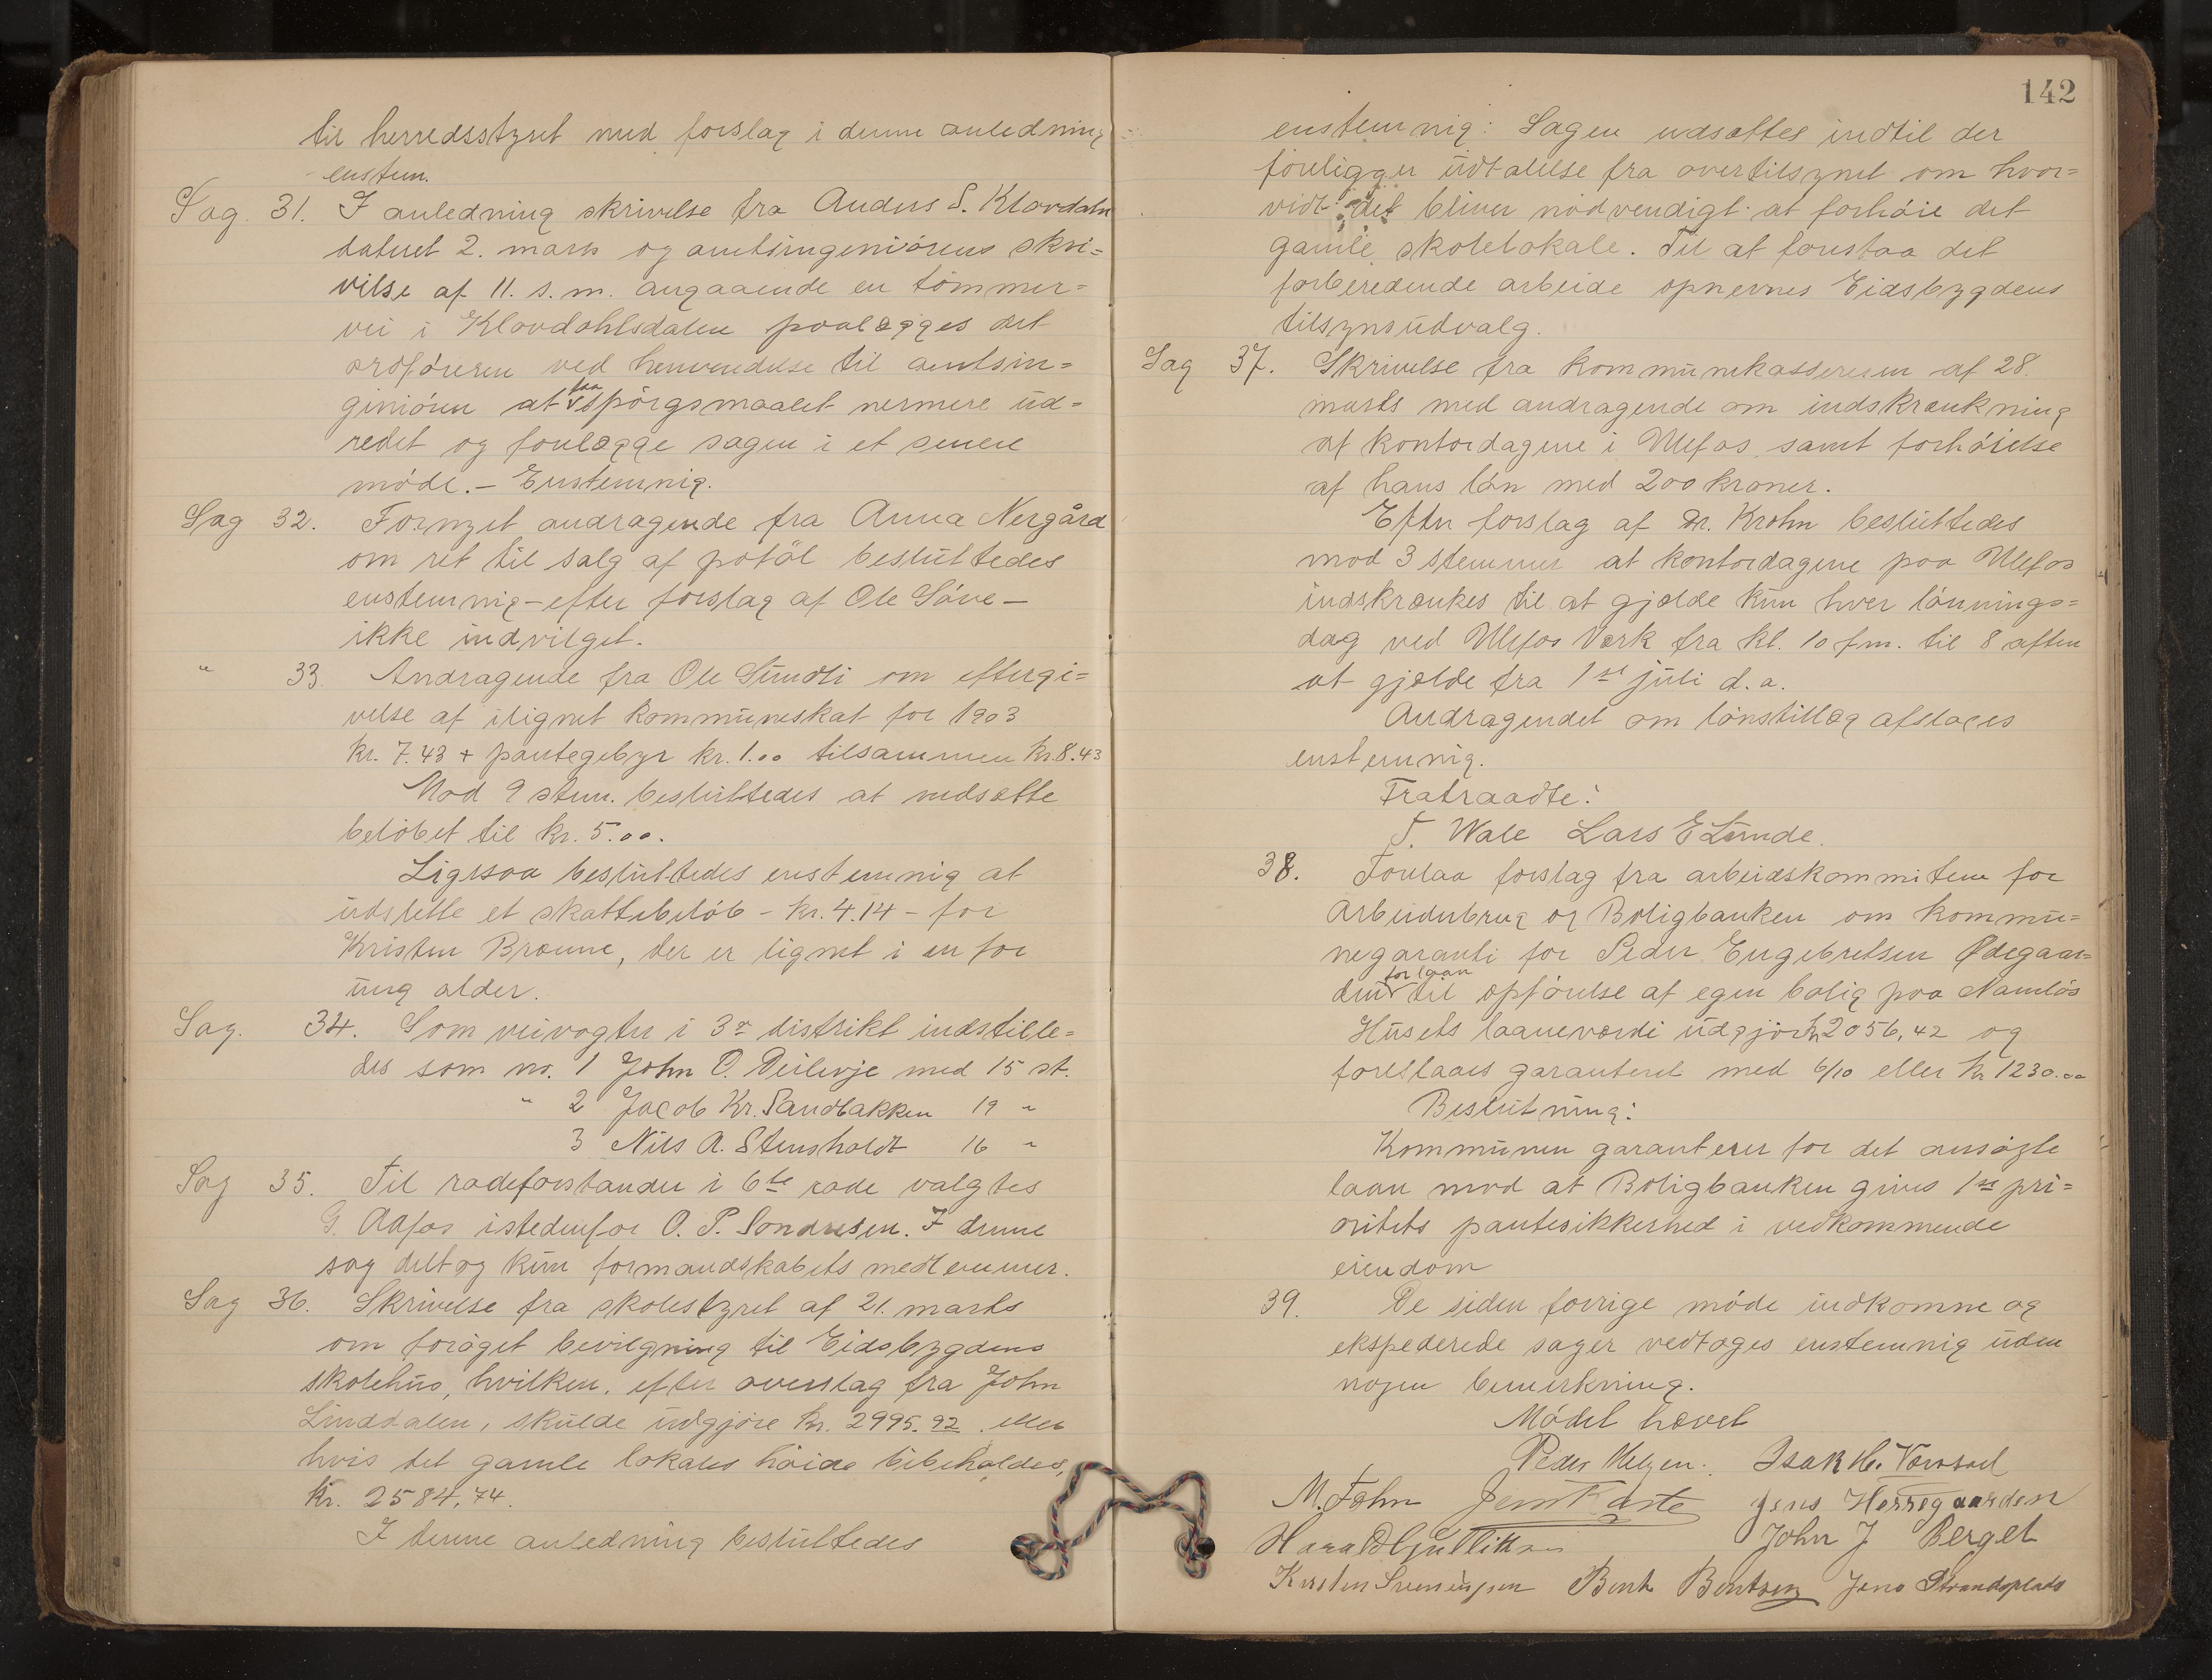 til herredsstyret med forslag i denne anledning
enstem.
Sag. 31. I anledning skrivelse fra Anders S. Klovdahl
dateret 2. mars og amtsingeniörens skri=
velse af 11. s.m. angaaende en tömmer=
vei i Klovdahlsdalen paalægges det
ordföreren ved henvendelse til amtsin=
geniören at faa spörgsmaalet nermere ud=
redet og forelægge sagen i et senere
möde. – Enstemnig.
Sag 32. Fornyet andragende fra Anna Nergård
om ret til salg af potöl besluttedes
enstemnig – efter forslag af Ole Söve –
ikke indvilget.
" 33. Andragende fra Ole Sundli om eftergi=
velse af ilignet kommuneskat for 1903
kr. 7.43 + pantegebyr kr. 1.00 tilsammen kr. 8.43
Mod 9 stem. besluttedes at nedsætte
belöbet til kr. 5.00.
Ligesaa besluttedes enstemnig at
udslette et skattebelöb – kr. 4.14 – for
Kristen Brænne, der er lignet i en for
ung alder.
Sag. 34. Som veivogter i 3. distrikt indstille=
des som no. 1 John O. Deilevje med 15 st.
" 2 Jacob Kr. Sandbakken 19 "
3 Nils A. Stensholdt 16 "
Sag 35. Til rodeforstander i 6te rode valgtes
G. Aafos istedenfor O. P. Sondresen. I denne
sag deltog kun formandskabets medlemmer.
Sag 36. Skrivelse fra skolestyret af 21. marts
om foröget bevilgning til Eidsbygdens
skolehus, hvilken, efter overslag fra John
Linddalen, skulde udgjöre kr. 2995.92 eller
hvis det gamle lokales höide bibeholdes,
kr. 2584,74.
I denne anledning besluttedes
142
enstemnig: Sagen udsættes indtil der
foreligger udtalelse fra overtilsynet om hvor=
vidt det bliver nödvendigt at forhöie det
gamle skolelokale. Til at forestaa det
forberedende arbeide opnevnes Eidsbygdens
tilsynsudvalg.
Sag 37. Skrivelse fra kommunekassereren af 28.
marts med andragende om indskrænkning
af kontordagene i Ulefos samt forhöielse
af hans lön med 200 kroner.
Efter forslag af Dr. Krohn besluttedes
mod 3 stemmer at kontordagene paa Ulefos
indskrænkes til at gjælde kun hver lönnings=
dag ved Ulefos Værk fra kl. 10 fm. til 8 aften
at gjælde fra 1ste juli d.a.
Andragendet om lönstillæg afslaaes
enstemnig.
Fratraadte:
T. Wale Lars E Lunde.
38. Forelaa forslag fra arbeidskommiteen for
Arbeiderbrug og Boligbanken om kommu=
negaranti for Peder Engebretsen Ødegaar=
den for laan til opförelse af egen bolig paa Namlös
Husets laaneværdi udgjör kr 2056,42 og
foreslaaes garanteret med 6/10 eller kr 1230.00
Beslutning:
Kommunen garanterer for det ansögte
laan mod at Boligbanken gives 1ste pri=
oritets pantesikkerhed i vedkommende
eiendom
39. De siden forrige möde indkomne og
ekspederede sager vedtoges enstemnig uden
nogen bemerkning.
Mödet hævet
Peder Melgen. Isak H.
M. Fohn Jens Kaste Jens Herregaarden
Harald John J Berget
Kersten Bent Bentsen Jens Strandsplads